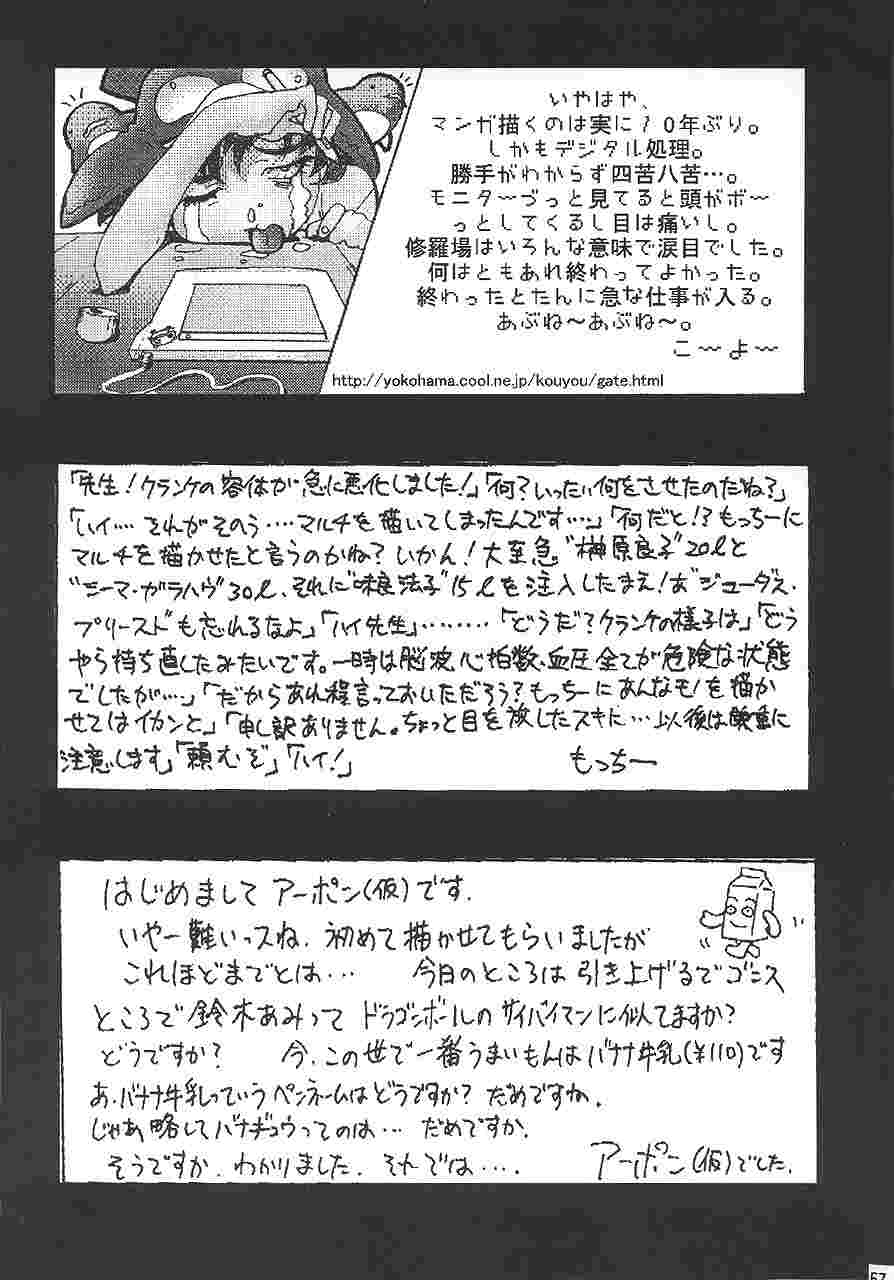 いやはや、
マンガ描くのは実に10年ぶり。
しかもデジタル処理。
勝手がわからず四苦八苦…。
モニタ〜づっと見てると頭がボ〜
っとしてくるし目は痛いし。
修羅場はいろんな意味で涙目でした。
何はともあれ終わってよかった。
終わったとたんに急な仕事が入る。
あぶね〜あぶね〜。
こ〜よ〜
http://yokohama.cool.ne.jp/kouyou/gate.html
「先生!クランケの容体が急に悪化しました!」「何?いったい何をさせたのだね?」
「ハイ…. それがそのう….マルチを描いてしまったんです….」「何だと!?もっちーに
マルチを描かせたと言うのかね?いかん!大至急"榊原良子"20lと
"ニーマ・ガラハヴ"30l、それに"味良法子"15lを注入したまえ!あ"ジューダス・
プリースト"も忘れるなよ」「ハイ先生」………「どうだ?クランケの様子は」「どう
やら持ち直したみたいです。一時は脳波、心拍数、血圧全てが危険な状態
でしたが…」「だからあれ程言っておいただろう?もっちーにあんなモノを描か
せてはイカンと」「申し訳ありません。ちょっと目を放したスキに…以後は慎重に
注意します」「頼むぞ」「ハイ!」
もっちー
はじめまして アーポン(仮)です.
いやー難いっスね. 初めて描かせてもらいましたが
これほどまでとは… 今日のところは引き上げるでゴンス
ところで鈴木あみって ドラゴンボールのサイバイマンに似てますか?
どうですか? 今、この世で一番うまいもんはバナナ牛乳(¥110)です
あ.バナナ牛乳っていうペンネームはどうですか? だめですね.
じゃあ略してバナギュウってのは… だめですか.
そうですか. わかりました. それでは….
アーポン(仮)でした.
57